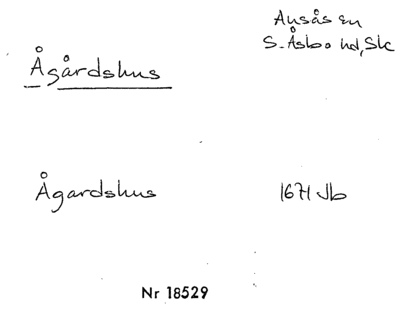 Ågårdshus
Ausås sn
S. Åsbo hd, Sk
Ågardshus
1671 Jb
Nr 18529